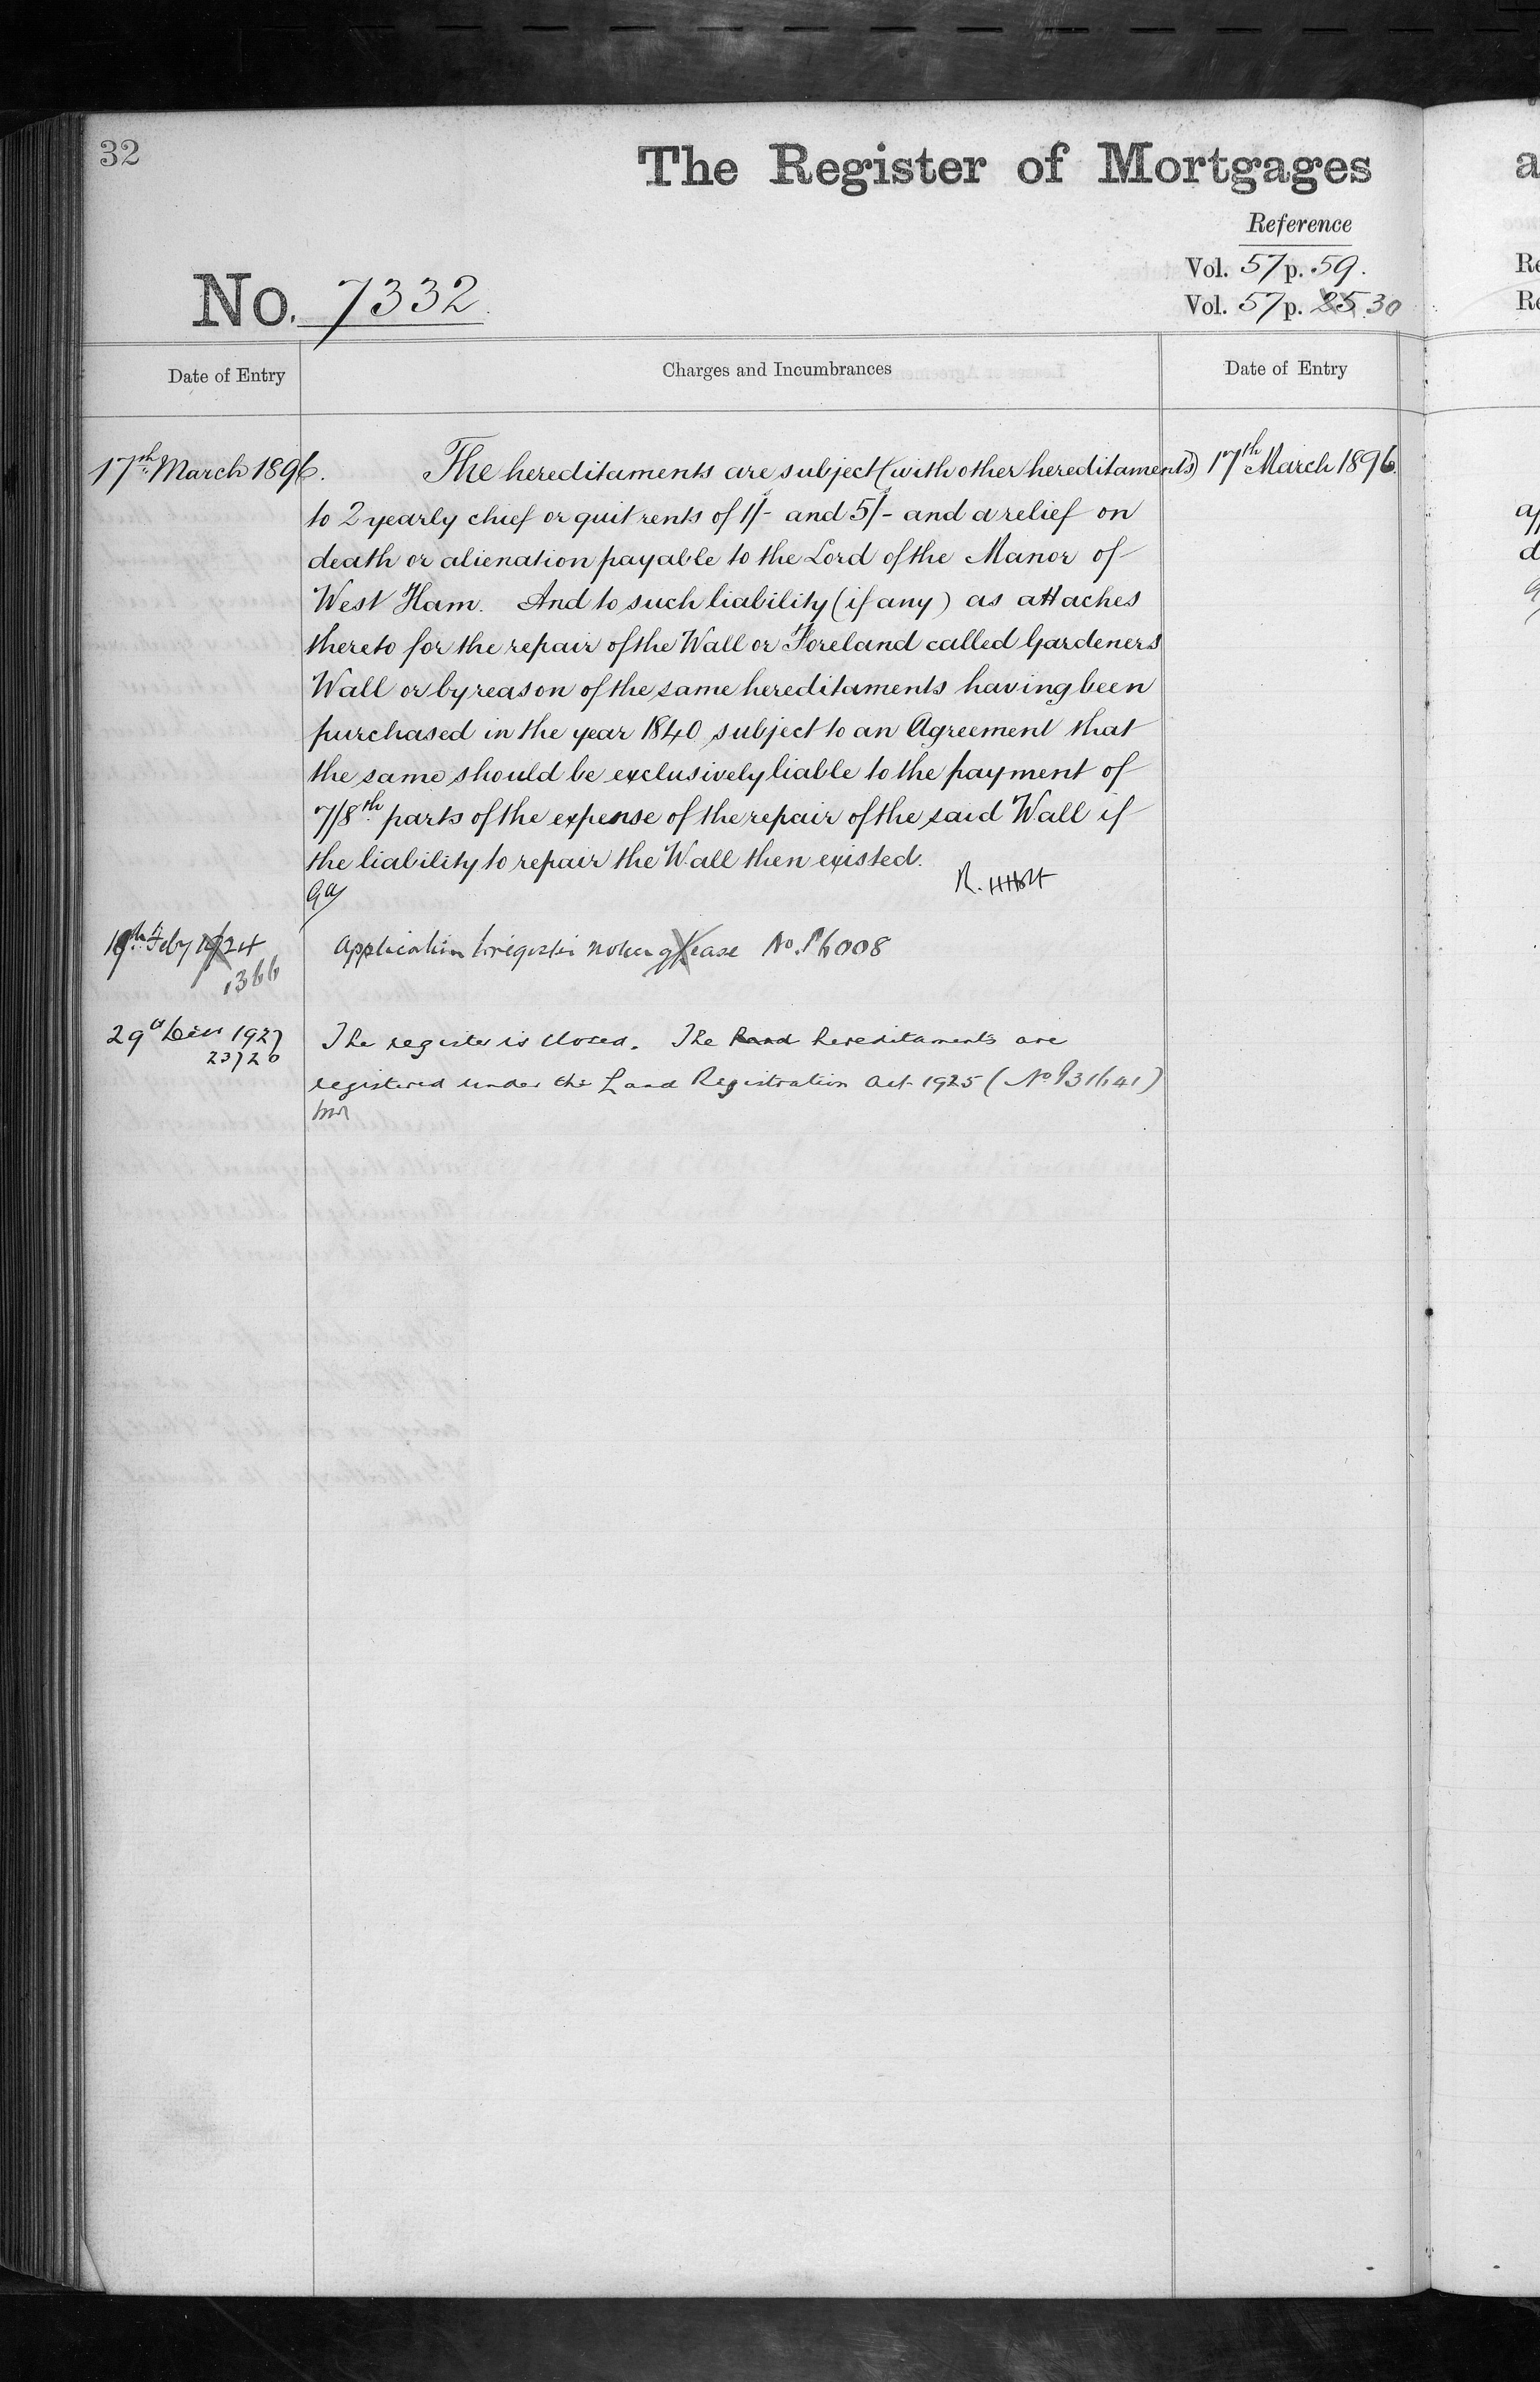 32
The Register of Mortgages
Reference
Vol. 57 p. 59.
No. 7332.
Vol. 57 p. 25. 30
Date of Entry
Charges and Incumbrances
Date of Entry
17th March 1896.
The hereditaments are subject (with other hereditaments)
17th March 1896.
to 2 yearly chief or quit rents of 1/- and 5/- and a relief on
death or alienation payable to the Lord of the Manor of
West Ham. And to such liability (if any) as attaches
thereto for the repair of the Wall or Foreland called Gardeners
Wall or by reason of the same hereditaments having been
purchased in the year 1840 subject to an Agreement that
the same should be exclusively liable to the payment of
7/8th parts of the expense of the repair of the said Wall if
the liability to repair the Wall then existed.
Feby 1924
Application to register noting Lease No. P6008
1366
29th Decr 1927
The register is closed. The land hereditaments are
23720
registered under the Land Registration Act 1925 (No P31641)